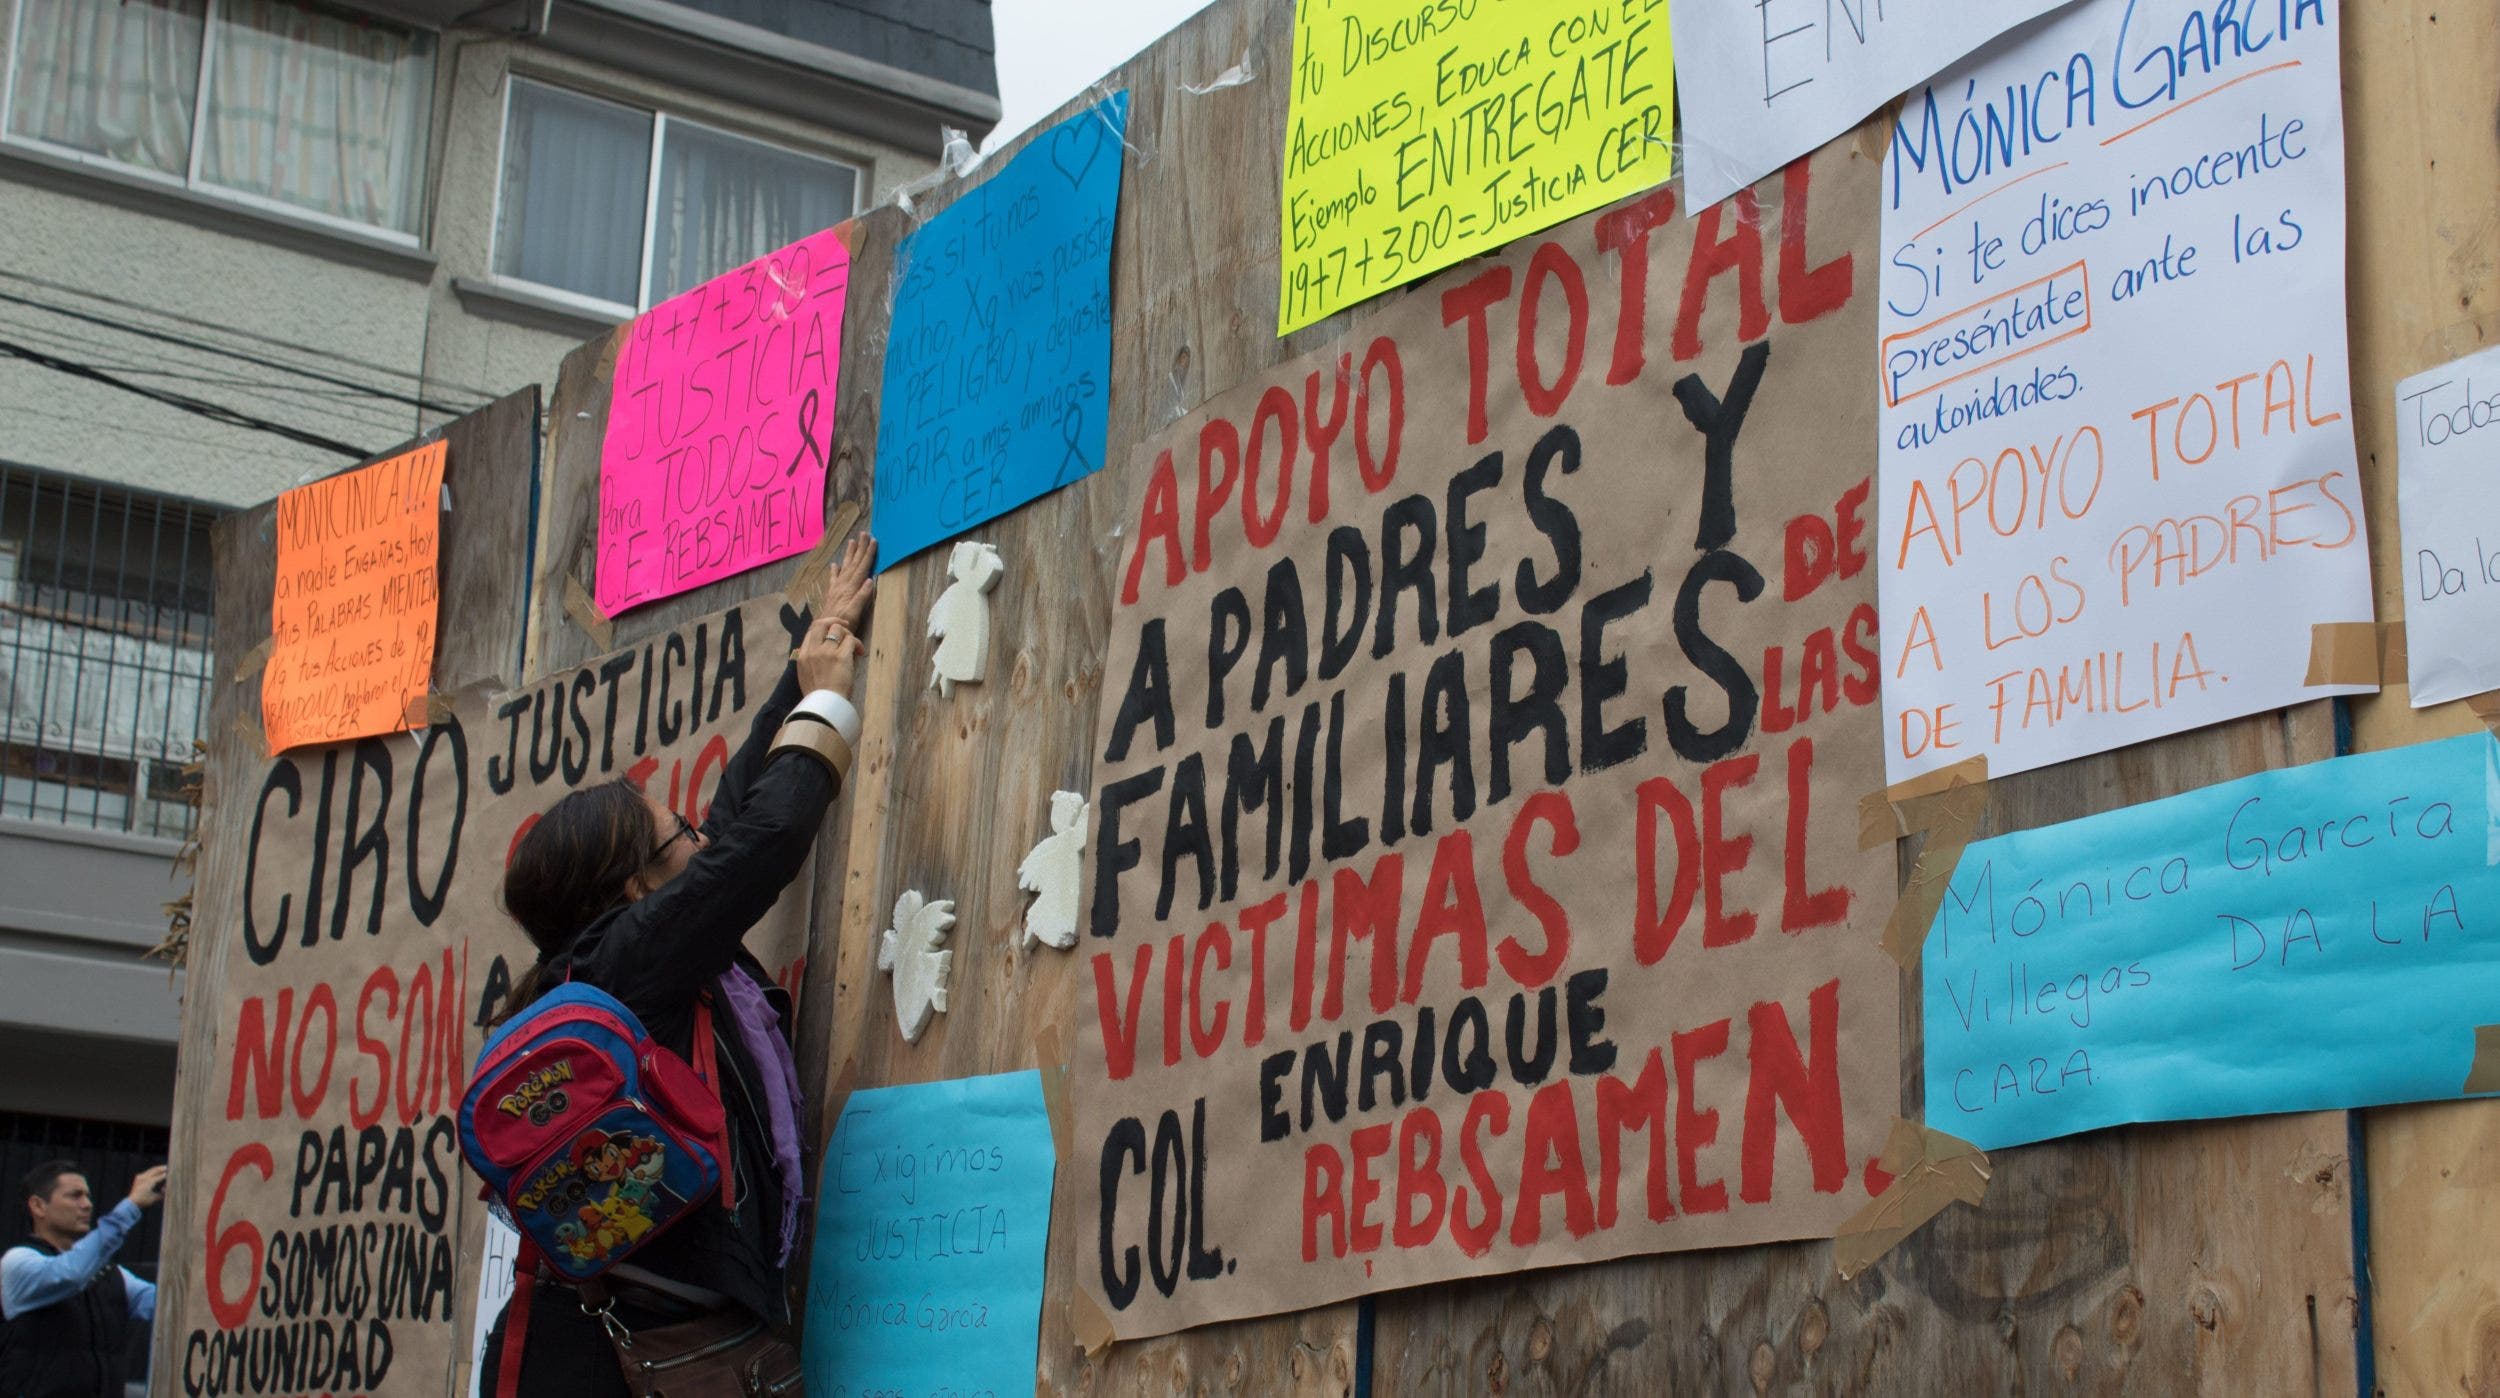 MONICÍNICA!!!
a nadie ENGAÑAS, HOY
tus PALABRAS MIENTEN
Xq' tus ACCIONES de
ABANDONO hablaron el 19s
JUSTICIA CER
19+7+300=
JUSTICIA
Para TODOS
C.E. REBSAMEN
Miss si tu nos
mucho, Xq' nos pusiste
en PELIGRO y dejaste
MORIR a mis amigos
CER
tu DISCURSO
ACCIONES, EDUCA CON EL
Ejemplo ENTRÉGATE
19+7+300=JUSTICIA CER
MÓNICA GARCÍA
Si te dices inocente
preséntate ante las
autoridades.
APOYO TOTAL
A LOS PADRES
DE FAMILIA.
Todos
Da la
CIRO
NO SON
6 PAPÁS
SOMOS UNA
COMUNIDAD
JUSTICIA Y
A
APOYO TOTAL
A PADRES Y
FAMILIARES DE
LAS
VICTIMAS DEL
COL. ENRIQUE
REBSAMEN.
Mónica García
Villegas DA LA
CARA.
Exigimos
JUSTICIA
Mónica García
No seas cínica
POKÉMON
GO
POKÉMON
GO